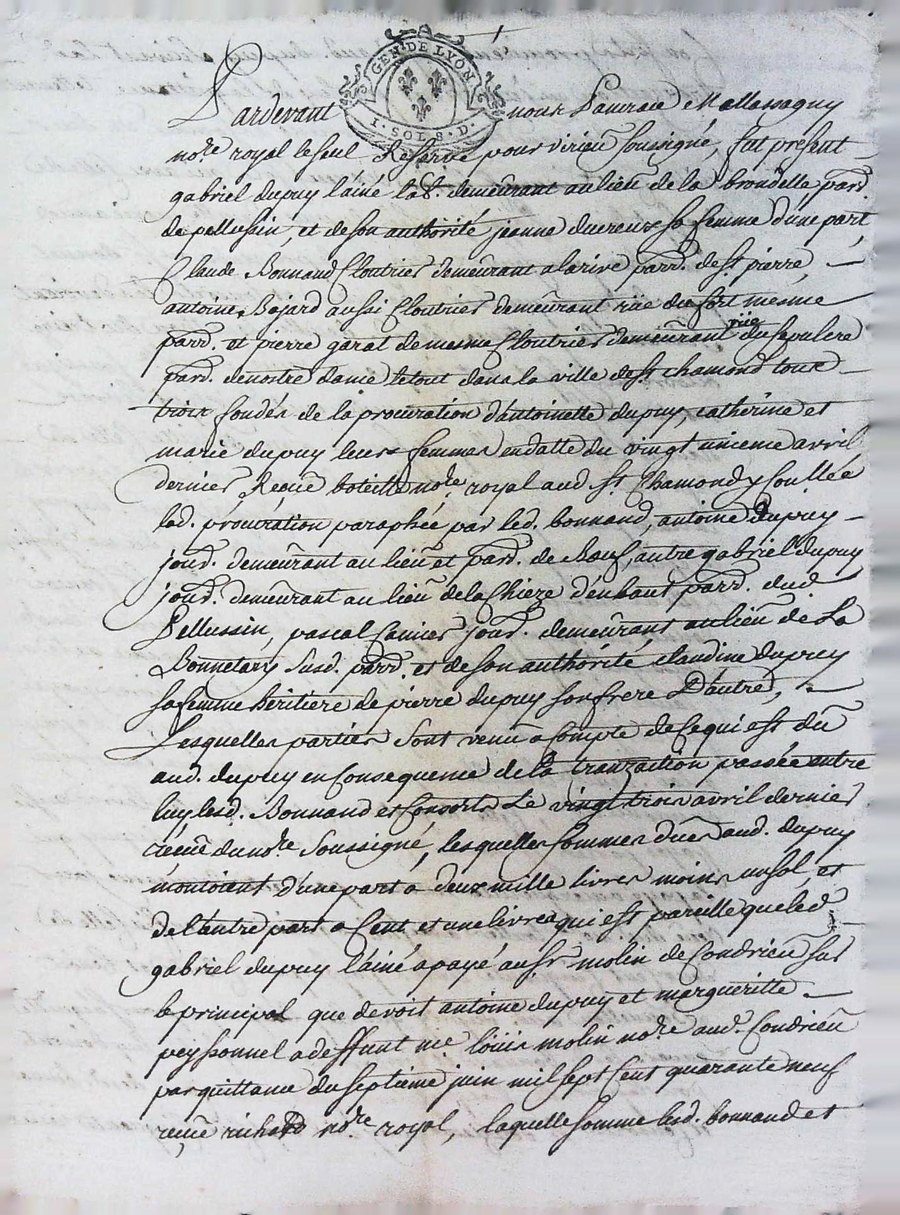 GEN. DE LYON
I. SOL 8. D.
Pardevant nous Pancrace Mallassagny
no.re royal le seul Reservé pour virieu soussigné, fut present
gabriel dupuy l'ainé lab.r demeurant au lieu de la brondelle parr.
de pellussin, et de son authorité jeanne ducreux sa femme d'une part
Claude Bonnand Cloutrier demeurant a larive parr. de st pierre
antoine Bajard aussi Cloutrier demeurant rüe du fort mesme
parr. et pierre garat de mesme Cloutrier demeurant rüe du sepulcre
parr. de nostre dame le tout dans la ville de st chamond tous
trois fondés de la procuration d'antoinette dupuy, catherine et
marie dupuy leurs femmes en datte du vingt unieme avril
dernier Recüe boteille no.re royal aud. st. Chamond y soullée
lad. procuration paraphée par led. bonnand, antoine dupuy
jour. demeurant au lieu et parr. de Bœuf, autre gabriel dupuy
jour. demeurant au lieu de la Chieze d'enhaut parr. dud.
Pellussin, pascal jour. demeurant au lieu de La
Bonnetary susd. parr. et de son authorité claudine dupuy
sa femme héritiere de pierre dupuy son frere D'autre,
Lesquelles parties sont venu a compte de ce qui est dû
aud. dupuy en Consequence de la tranzaction passée entre
luy lesd. Bonnand et Consorts Le vingt trois avril dernier
recüe du no.re soussigné, lesquelles sommes dües aud. dupuy
montoient d'une part a deux mille livres moins un sol, et
de l'autre part a Cent et une livres qui est pareille que led.
gabriel dupuy l'ainé a payé au sr. molin de Condrieu sur
le principal que devoit antoine dupuy et margueritte
peyssonnel a deffunt me. loüis molin no.re aud. Condrieu
par quittance du septieme juin mil sept Cent quarante neuf
reçüe richard no.re royal, laquelle somme lesd. bonnand et